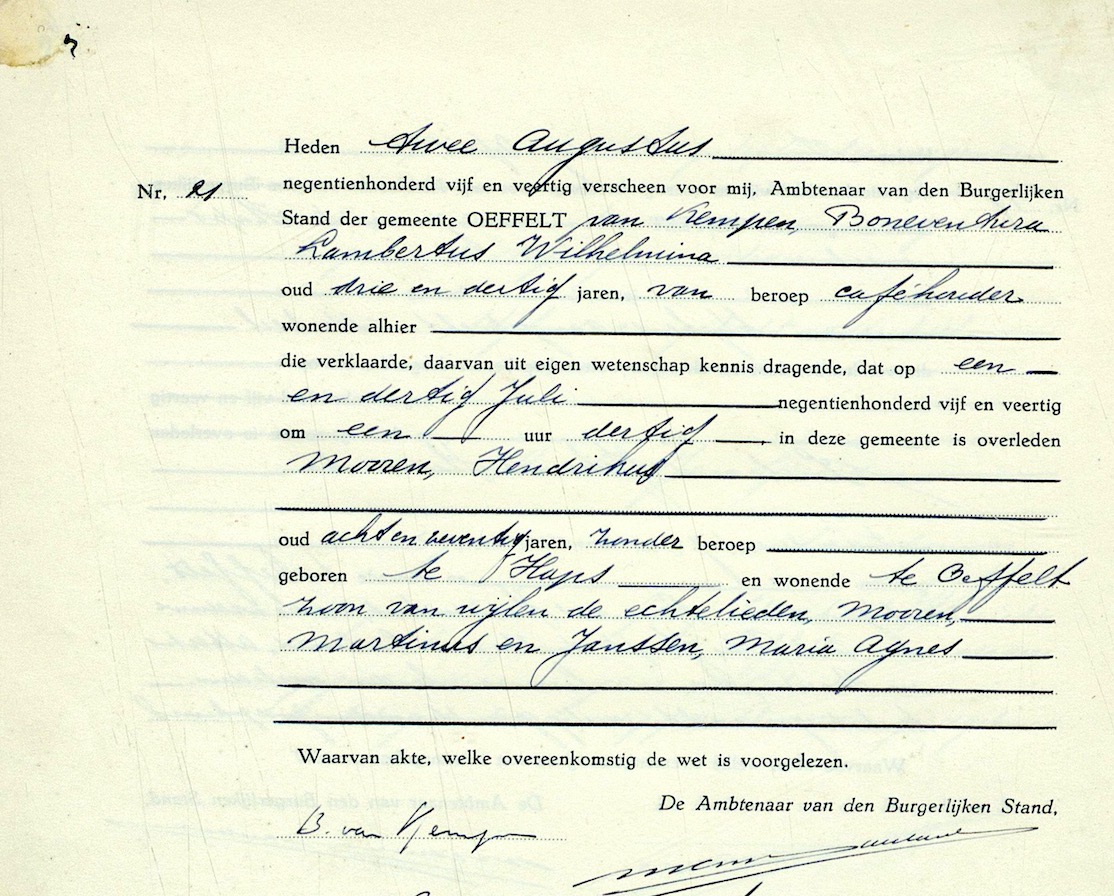 Heden twee Augustus
Nr. 21 negentienhonderd vijf en veertig verscheen voor mij, Ambtenaar van den Burgerlijken
Stand der gemeente OEFFELT van Kempen, Boneventura
Lambertus Wilhelmina
oud drie en dertig jaren, van beroep caféhouder
wonende alhier
die verklaarde, daarvan uit eigen wetenschap kennis dragende, dat op een
en dertig Juli negentienhonderd vijf en veertig
om een uur dertig, in deze gemeente is overleden
Mooren, Hendrikus
oud acht en zeventig jaren, zonder beroep
geboren te Haps en wonende te Oeffelt
zoon van wijlen de echtelieden, Mooren,
Martinus en Janssen, Maria Agnes
Waarvan akte, welke overeenkomstig de wet is voorgelezen.
De Ambtenaar van den Burgerlijken Stand,
B. van Kempen